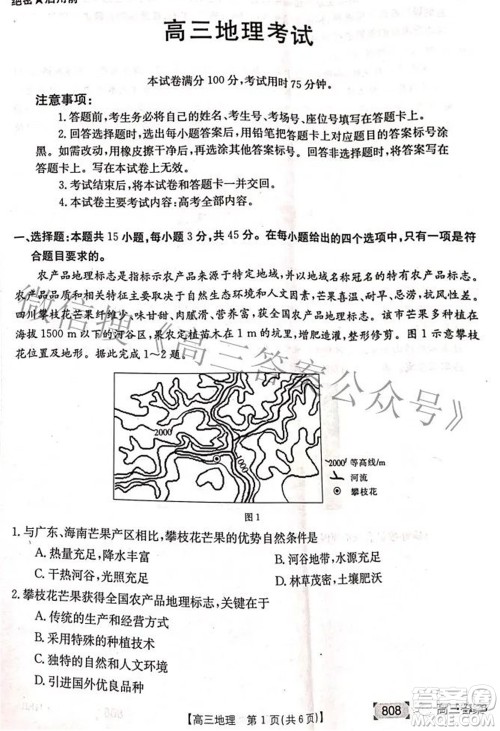 绝密★启用前
高三地理考试
本试卷满分100分，考试用时75分钟。
注意事项：
1. 答题前，考生务必将自己的姓名、考生号、考场号、座位号填写在答题卡上。
2. 回答选择题时，选出每小题答案后，用铅笔把答题卡上对应题目的答案标号涂
黑。如需改动，用橡皮擦干净后，再选涂其他答案标号。回答非选择题时，将答案写在
答题卡上。写在本试卷上无效。
3. 考试结束后，将本试卷和答题卡一并交回。
4. 本试卷主要考试内容：高考全部内容。
一、选择题：本题共15小题，每小题3分，共45分。在每小题给出的四个选项中，只有一项是符
合题目要求的。
农产品地理标志是指标示农产品来源于特定地域，并以地域名称冠名的特有农产品标志。
农产品品质和相关特征主要取决于自然生态环境，芒果喜高温、耐旱、忌炎、
四川攀枝花芒果纤维少，味甘甜，肉腻滑，营养丰富，获农产品地理标志。该市芒果多种植在
海拔1500 m以下的河谷区，果农种植苗木在1 m的坑里，增肥浇灌，整形修剪。图1示意攀枝
花位置及地形。据此完成1～2题。
2000
2000
2000 等高线/m
河流
攀枝花
图1
1. 与广东、海南芒果产区相比，攀枝花芒果的优势自然条件是
A. 热量充足，降水丰富
B. 河谷地带，水源充足
C. 干热河谷，光照充足
D. 林草茂密，土壤肥沃
2. 攀枝花芒果获得全国农产品地理标志，关键在于
A. 传统的生产和经营方式
B. 采用特殊的种植技术
C. 独特的自然和人文因素
D. 引进优良的芒果品种
【高三地理 第1页(共6页)】
808
高三答案
微信搜《高三答案公众号》